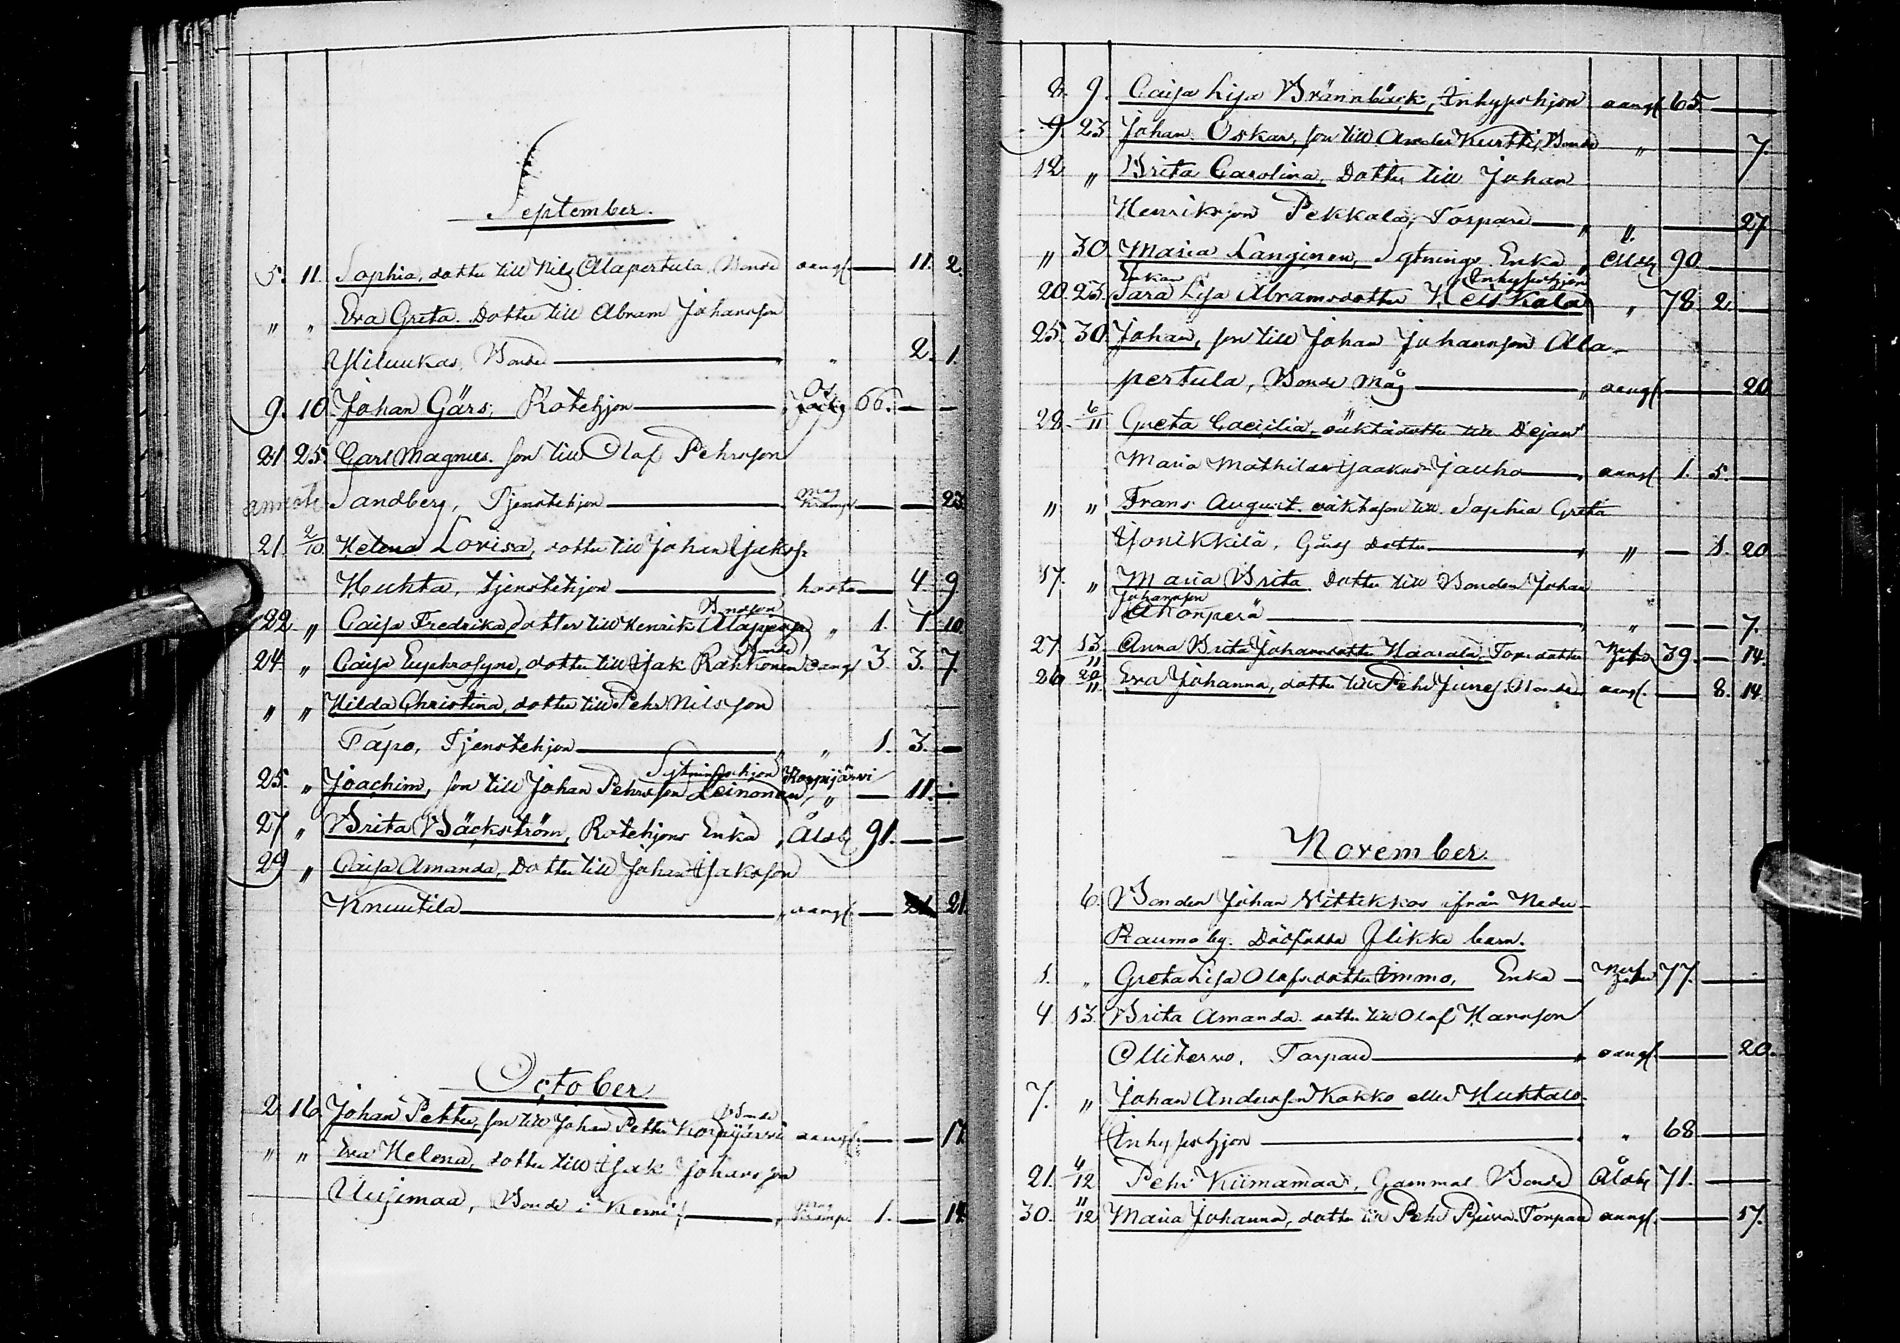 September.
5. 11. Sophia, dotter till Nils Alapertula, Bonde 11. 2.
" " Eva Greta. Dotter till Abram Johansson
Yliluukas, Bonde " 2. 1.
9. 10. Johan Gärs, Rotehjon 66. — —
21. 25. Carl Magnus. son till Olof Pehrsson
Sandberg, Tjenstehjon — — 23.
21. 2/10 Helena Lovisa, dotter till Johan
Huhta, tjenstehjon hosta — 4. 9
22. " Caisa Fredrika, dotter till Henrik Alaperä " 1. 1. 10.
24. " Caisa Euphrosyne, dotter till Isak Rahkonen 3. 3. 7.
" " Hilda Christina, dotter till Pehr Nilsson
Papo, Tjenstehjon " 1. 3. —
Sytningshjon
25. " Joachim, son till Johan Pehrsson Leinonen, " — 11. —
27 " Brita Bäckström, Rotehjons Enka Åldr 91. — —
29 " Caisa Amanda, Dotter till Johan Isaksson
Knuutila — 21.
October.
Bonde
2. 16. Johan Petter, son till Johan Petter — — 17.
" " Eva Helena, dotter till Isak Johansson
Uusimaa, Bonde i Kemi 1. — 14.
8. 9. Caisa Lisa Brännbäck, Inhyseshjon 65. —
9. 23. Johan Oskar, son till Ander Kurtti, Bonde " — 7.
12. " Brita Carolina, Dotter till Johan
Henriksson Pekkala, Torpare " — 27
" 30. Maria Langinen, Sytnings Enka 90. —
Enkan Inhyseshjon
20. 23. Sara Lisa Abramsdotter Heiskala " 78. 2. —
25. 30. Johan, son till Johan Johansson Ala-
pertula, Bonde Måg — 20.
28. 6/11 Greta Caecilia, oäktadotter till Pejan
Maria Mathilda Jauho 1. 5. —
" " Frans August. oäktason till Sophia Greta
Yonikkilä, Gårds dotter " — 1. 20
17. " Maria Brita Dotter till Bonden Johan
Johansson
Akonperä " — — 7.
27. 13/11 Anna Brita Johansdotter Haarala, Torp.dotter 39. — 14.
26 20/11 Eva Johanna, dotter till Pehr — 8. 14.
November.
6. Bonden Johan Nittikkos ifrån Neder
Raumo by. Dödfödda flikke barn.
1. " Greta Lisa Olofsdotter Immo, Enka 77. —
4. 13. Brita Amanda. dotter till Olof Hansson
Ollitervo, Torpare — 20.
7. " Johan Andersson Kokko eller Huhtalo
Inhyseshjon " 68 —
21. 4/12 Pehr Kiimamaa, Gammal Bonde Åldr 71. —
30. 11/12 Maria Johanna, dotter till Pehr Torpare — 17.